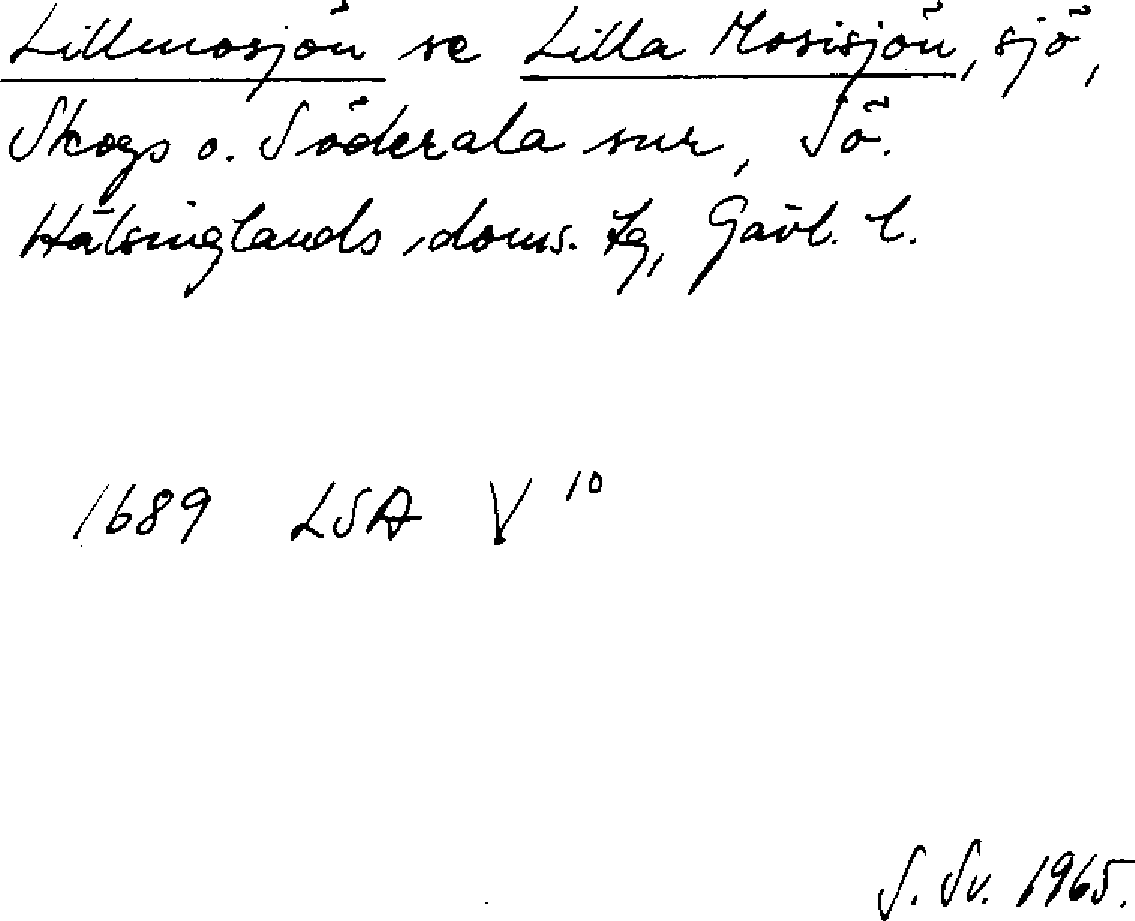 Lillmosjön se Lilla Mosisjön, sjö,
Skogs o. Söderala snr, Sö.
Hälsinglands doms. tg, Gävl. l.
1689 LSA V 10
S. Sv. 1965.